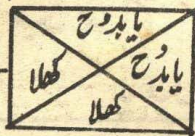 یا بدوح
یا بدُوح
کھلا
کھلا